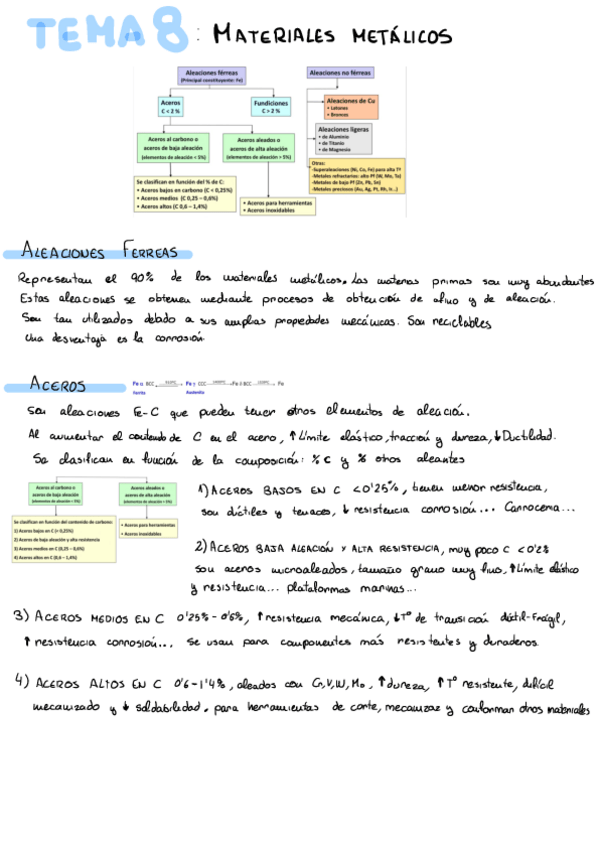 TEMA 8 : MATERIALES METÁLICOS
Aleaciones férreas
(Principal constituyente: Fe)
Aleaciones no férreas
Aceros
C < 2 %
Fundiciones
C > 2 %
Aleaciones de Cu
• Latones
• Bronces
Aleaciones ligeras
• de Aluminio
• de Titanio
• de Magnesio
Aceros al carbono o
aceros de baja aleación
(elementos de aleación < 5%)
Aceros aleados o
aceros de alta aleación
(elementos de aleación > 5%)
Otras:
-Superaleaciones (Ni, Co, Fe) para alta Tª
-Metales refractarios: alto Pf (W, Mo, Ta)
-Metales de bajo Pf (Zn, Pb, Sn)
-Metales preciosos (Au, Ag, Pt, Rh, Ir...)
Se clasifican en función del % de C:
• Aceros bajos en carbono (C < 0,25%)
• Aceros medios (C 0,25 – 0,6%)
• Aceros altos (C 0,6 – 1,4%)
• Aceros para herramientas
• Aceros inoxidables
ALEACIONES FERREAS
Representan el 90% de los materiales metálicos. Las materias primas son muy abundantes
Estas aleaciones se obtienen mediante procesos de obtención de afino y de aleación.
Son tan utilizados debido a sus amplias propiedades mecánicas. Son reciclables
Una desventaja es la corrosión.
ACEROS
Fe α BCC → Fe γ CCC → Fe δ BCC → Fe
Ferrita Austenita
Son aleaciones Fe-C que pueden tener otros elementos de aleación.
Al aumentar el contenido de C en el acero, ↑Límite elástico, tracción y dureza, ↓Ductilidad.
Se clasifican en función de la composición: % C y % otros aleantes
Aceros al carbono o
aceros de baja aleación
(elementos de aleación < 5%)
Aceros aleados o
aceros de alta aleación
(elementos de aleación > 5%)
Se clasifican en función del contenido de carbono:
1) Aceros bajos en C (< 0,25%)
2) Aceros de baja aleación y alta resistencia
3) Aceros medios en C (0,25 – 0,6%)
4) Aceros altos en C (0,6 – 1,4%)
• Aceros para herramientas
• Aceros inoxidables
1) ACEROS BAJOS EN C <0'25%, tienen menor resistencia,
son dúctiles y tenaces, ↓ resistencia corrosión... Carrocería...
2) ACEROS BAJA ALEACIÓN Y ALTA RESISTENCIA, muy poco C <0'2%
son aceros microaleados, tamaño grano muy fino, ↑Límite elástico
y resistencia... plataformas marinas...
3) ACEROS MEDIOS EN C 0'25% - 0'6%, ↑resistencia mecánica, ↓Tº de transición dúctil-Frágil,
↑ resistencia corrosión..., se usan para componentes más resistentes y duraderos.
4) ACEROS ALTOS EN C 0'6 - 1'4%, aleados con Cr,V,W,Mo, ↑dureza, ↑Tº resistente, difícil
mecanizado y ↓ soldabilidad. para herramientas de corte, mecanizar y conformar otros materiales